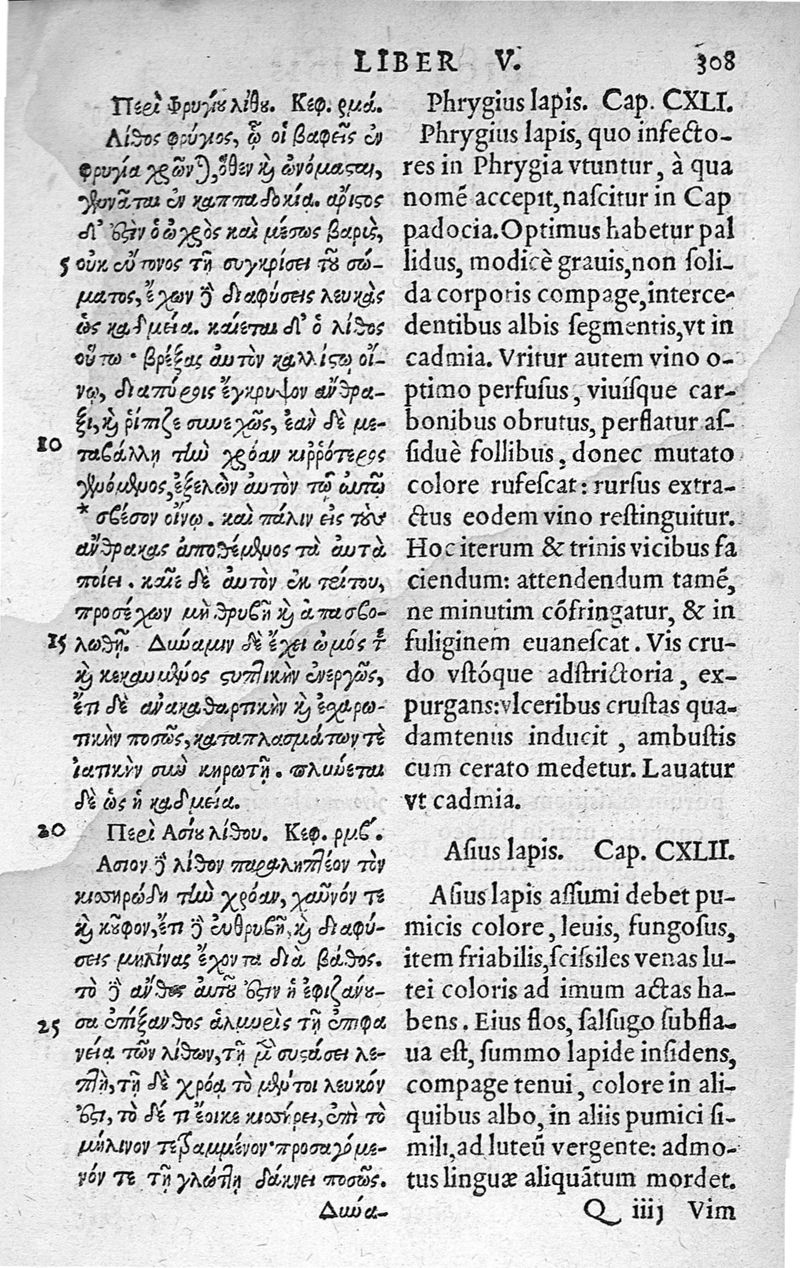 LIBER V. 308
Περὶ Φρυγίου λίθου. Κεφ. ρμά.
Λίθος φρύγιος, ᾧ οἱ βαφεῖς ἐν
φρυγία χρῶνται, ὅθεν καὶ ὠνόμασαι,
γεννᾶται ἐν καππαδοκία. ἄριστος
δ' ἐστὶν ὁ ὠχρὸς καὶ μέσως βαρὺς,
5 οὐκ εὔτονος τῇ συγκρίσει τοῦ σώ-
ματος, ἔχων δὲ διαφύσεις λευκὰς
ὡς καδμεία. καίεται δ' ὁ λίθος
οὕτω· βρέξας αὐτὸν καλλίστῳ οἴ-
νῳ, διαπύροις ἔγκρυψον ἄνθρα-
ξι, καὶ ῥίπιζε συνεχῶς, ἐὰν δὲ με-
10 ταβάλλη τὴν χρόαν κιῤῥότερος
γενόμενος, ἐξελὼν αὐτὸν τῷ αὐτῷ
* σβέσον οἴνῳ. καὶ πάλιν εἰς τοὺς
ἄνθρακας ἀποθέμενος τὰ αὐτὰ
ποίει. καῖε δὲ αὐτὸν ἐκ τρίτου,
προσέχων μὴ θρυβῇ καὶ ἀπασβο-
15 λωθῇ. Δύναμιν δὲ ἔχει ὠμός τε
καὶ κεκαυμένος στυπτικὴν ἐνεργῶς,
ἔτι δὲ ἀνακαθαρτικὴν καὶ ἐσχαρω-
τικὴν ποσῶς, καταπλασμάτων τὲ
ἰατικὴν σὺν κηρωτῇ. πλύνεται
δὲ ὡς ἡ καδμεία.
20 Περὶ Ασίου λίθου. Κεφ. ρμβʹ.
Ασιον δὲ λίθον παραληπτέον τὸν
κισσηρώδη τὴν χρόαν, χαῦνόν τε
καὶ κοῦφον, ἔτι δὲ εὐθρυβῆ, καὶ διαφύ-
σεις μηλίνας ἔχοντα διὰ βάθος.
τὸ δὲ ἄνθος αὐτοῦ ἐστὶν ἡ ἐφιζάνου-
25 σα ἐπήξανθος ἁλμυρὶς τῇ ἐπιφα
νεία τῶν λίθων, τῇ μὲν συστάσει λε-
πτὴ, τῇ δὲ χρόα τὸ μέντοι λευκόν
ἐστι, τὸ δέ τι ἔοικε κισσήρει, ἐπὶ τὸ
μήλινον τεβαμμένον· προσαγόμε-
νόν τε τῇ γλώττῃ δάκνει ποσῶς.
Δύνα-
Phrygius lapis. Cap. CXLI.
Phrygius lapis, quo infecto-
res in Phrygia vtuntur, à qua
nomẽ accepit, nascitur in Cap
padocia. Optimus habetur pal
lidus, modicè grauis, non soli-
da corporis compage, interce-
dentibus albis segmentis, vt in
cadmia. Vritur autem vino o-
ptimo perfusus, viuisque car-
bonibus obrutus, perflatur as-
siduè follibus, donec mutato
colore rufescat: rursus extra-
ctus eodem vino restinguitur.
Hoc iterum & trinis vicibus fa
ciendum: attendendum tamẽ,
ne minutim cõfringatur, & in
fuliginem euanescat. Vis cru-
do vstóque adstrictoria, ex-
purgans: vlceribus crustas qua-
damtenus inducit, ambustis
cum cerato medetur. Lauatur
vt cadmia.
Asius lapis. Cap. CXLII.
Asius lapis assumi debet pu-
micis colore, leuis, fungosus,
item friabilis, scissiles venas lu-
tei coloris ad imum actas ha-
bens. Eius flos, salsugo subfla-
ua est, summo lapide insidens,
compage tenui, colore in ali-
quibus albo, in aliis pumici si-
mili, ad luteũ vergente: admo-
tus linguæ aliquãtum mordet.
Q iiij Vim